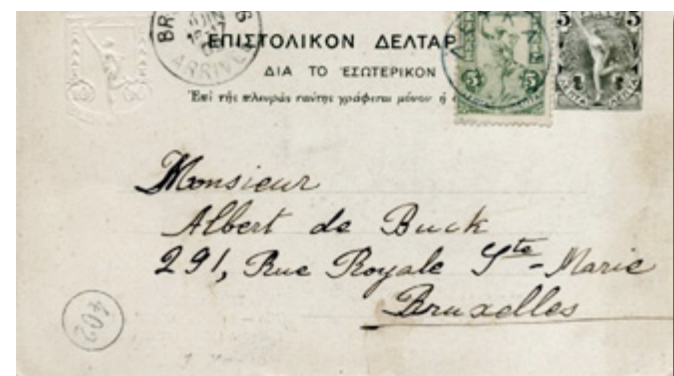 ΕΠΙΣΤΟΛΙΚΟΝ ΔΕΛΤΑΡ
ΔΙΑ ΤΟ ἘΣΩΤΕΡΙΚΟΝ
Ἐπὶ τῆς πλευρᾶς ταύτης γράφεται μόνον ἡ
5 5
5
ARRIVÉE
Monsieur
Albert de Buck
291, Rue Royale Ste-Marie
Bruxelles
402